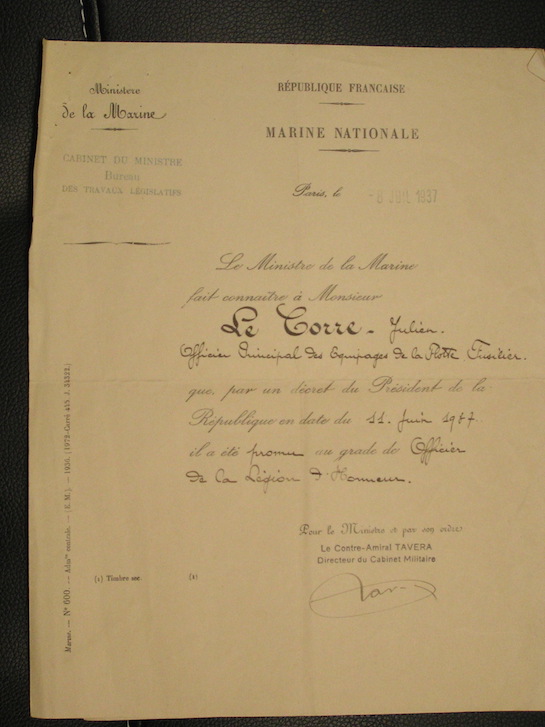 Ministère
de la Marine
CABINET DU MINISTRE
Bureau
DES TRAVAUX LÉGISLATIFS
RÉPUBLIQUE FRANÇAISE
MARINE NATIONALE
Paris, le -8 JUIL 1937
Le Ministre de la Marine
fait connaître à Monsieur
Le Corre - Julien.
Officier Principal des Equipages de la Flotte Fusilier.
que, par un décret du Président de la
République en date du 11 Juin 1937.
il a été promu au grade de Officier
de la Légion d'Honneur.
Pour le Ministre et par son ordre
Le Contre-Amiral TAVERA
Directeur du Cabinet Militaire
(1) Timbre sec
(1)
Marine. — N° 600. — Adm. centrale. — (E. M.) — 1936. [1972-Carré 455. J. 34323.]